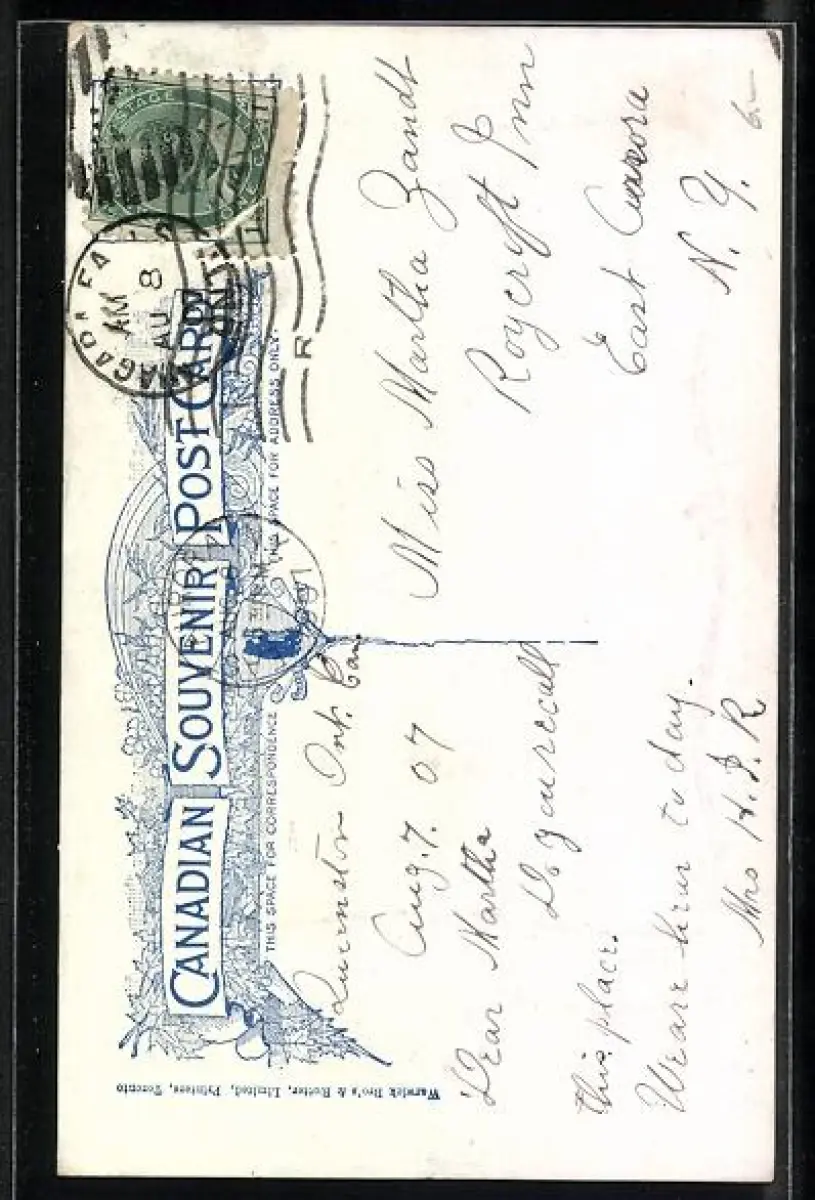 CANADIAN SOUVENIR POST CARD
THIS SPACE FOR CORRESPONDENCE
THIS SPACE FOR ADDRESS ONLY.
Warwick Bro's & Rutter, Limited, Printers, Toronto
POSTAGE
NIAGARA FA
AM
8
AU
ONT
R
Queenston Ont. Can.
Aug. 7. 07
Dear Martha
Do you recall
this place.
We are here to day.
Mrs H. J. R
Miss Martha Zandt
Roycroft Inn
East Aurora
N. Y.
6-